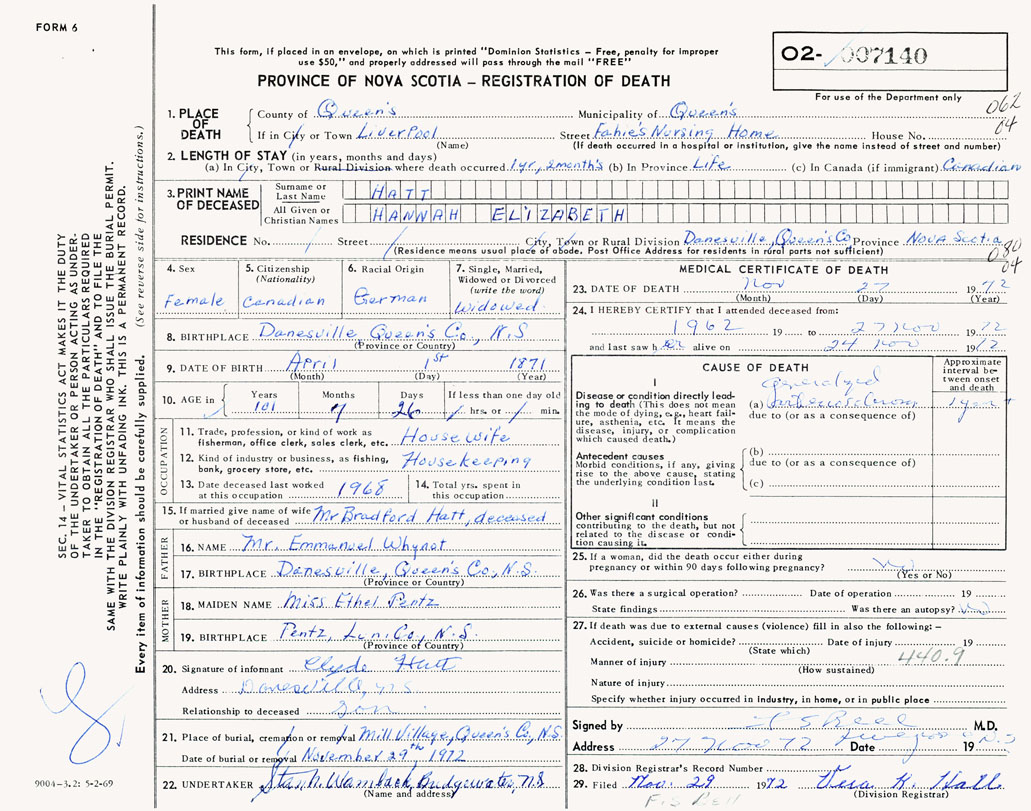 FORM 6
This form, if placed in an envelope, on which is printed "Dominion Statistics – Free, penalty for improper
use $50," and properly addressed will pass through the mail "FREE"
PROVINCE OF NOVA SCOTIA – REGISTRATION OF DEATH
02- 007140
For use of the Department only
062
04
SEC. 14 – VITAL STATISTICS ACT MAKES IT THE DUTY
OF THE UNDERTAKER OR PERSON ACTING AS UNDER-
TAKER TO OBTAIN ALL THE PARTICULARS REQUIRED
IN THE "REGISTRATION OF DEATH" AND TO FILE THE
SAME WITH THE DIVISION REGISTRAR WHO SHALL ISSUE THE BURIAL PERMIT.
WRITE PLAINLY WITH UNFADING INK. THIS IS A PERMANENT RECORD.
Every item of information should be carefully supplied. (See reverse side for instructions.)
1. PLACE OF DEATH
County of Queen's Municipality of Queen's
If in City or Town Liverpool Street Fahie's Nursing Home House No.
(Name) (If death occurred in a hospital or institution, give the name instead of street and number)
2. LENGTH OF STAY (in years, months and days)
(a) In City, Town or Rural Division where death occurred 1yr, 2month's (b) In Province Life (c) In Canada (if immigrant) Canadian
3. PRINT NAME OF DECEASED
Surname or Last Name HATT
All Given or Christian Names HANNAH ELIZABETH
RESIDENCE No. Street City, Town or Rural Division Danesville, Queen's Co Province NOVA SCOTIA
(Residence means usual place of abode. Post Office Address for residents in rural parts not sufficient)
080
04
4. Sex
Female
5. Citizenship
(Nationality)
Canadian
6. Racial Origin
German
7. Single, Married,
Widowed or Divorced
(write the word)
Widowed
8. BIRTHPLACE Danesville, Queen's Co, N.S
(Province or Country)
9. DATE OF BIRTH April 1st 1871
(Month) (Day) (Year)
10. AGE in
Years Months Days If less than one day old
101 7 26 hrs. or min.
OCCUPATION
11. Trade, profession, or kind of work as
fisherman, office clerk, sales clerk, etc. Housewife
12. Kind of industry or business, as fishing,
bank, grocery store, etc. Housekeeping
13. Date deceased last worked
at this occupation 1968
14. Total yrs. spent in
this occupation
15. If married give name of wife
or husband of deceased Mr Bradford Hatt, deceased
FATHER
16. NAME Mr. Emmanuel Whynot
17. BIRTHPLACE Danesville, Queen's Co, N.S.
(Province or Country)
MOTHER
18. MAIDEN NAME Miss Ethel Pentz
19. BIRTHPLACE Pentz, Lun. Co, N.S.
(Province of Country)
20. Signature of informant Clyde Hatt
Address Danesville, NS
Relationship to deceased Son
21. Place of burial, cremation or removal Mill Village, Queen's Co, N.S.
Date of burial or removal November 29th 1972
22. UNDERTAKER N.S
(Name and address)
9004-3.2: 5-2-69
MEDICAL CERTIFICATE OF DEATH
23. DATE OF DEATH Nov 27 1972
(Month) (Day) (Year)
24. I HEREBY CERTIFY that I attended deceased from:
1962 19 to 27 Nov 1972
and last saw her alive on 24 Nov 1972
CAUSE OF DEATH
Approximate
interval be-
tween onset
and death
I
Disease or condition directly lead-
ing to death (This does not mean
the mode of dying, e.g., heart fail-
ure, asthenia, etc. It means the
disease, injury, or complication
which caused death.)
generalized
(a) 1 year +
due to (or as a consequence of)
Antecedent causes
Morbid conditions, if any, giving
rise to the above cause, stating
the underlying condition last.
(b)
due to (or as a consequence of)
(c)
II
Other significant conditions
contributing to the death, but not
related to the disease or condi-
tion causing it.
25. If a woman, did the death occur either during
pregnancy or within 90 days following pregnancy? No
(Yes or No)
26. Was there a surgical operation? Date of operation 19
State findings Was there an autopsy? No
27. If death was due to external causes (violence) fill in also the following:–
Accident, suicide or homicide? Date of injury 19
(State which)
Manner of injury 440.9
(How sustained)
Nature of injury
Specify whether injury occurred in industry, in home, or in public place
Signed by M.D.
Address 27 Nov 72 Date 19 N.S
28. Division Registrar's Record Number
29. Filed Nov. 29 1972
(Division Registrar)